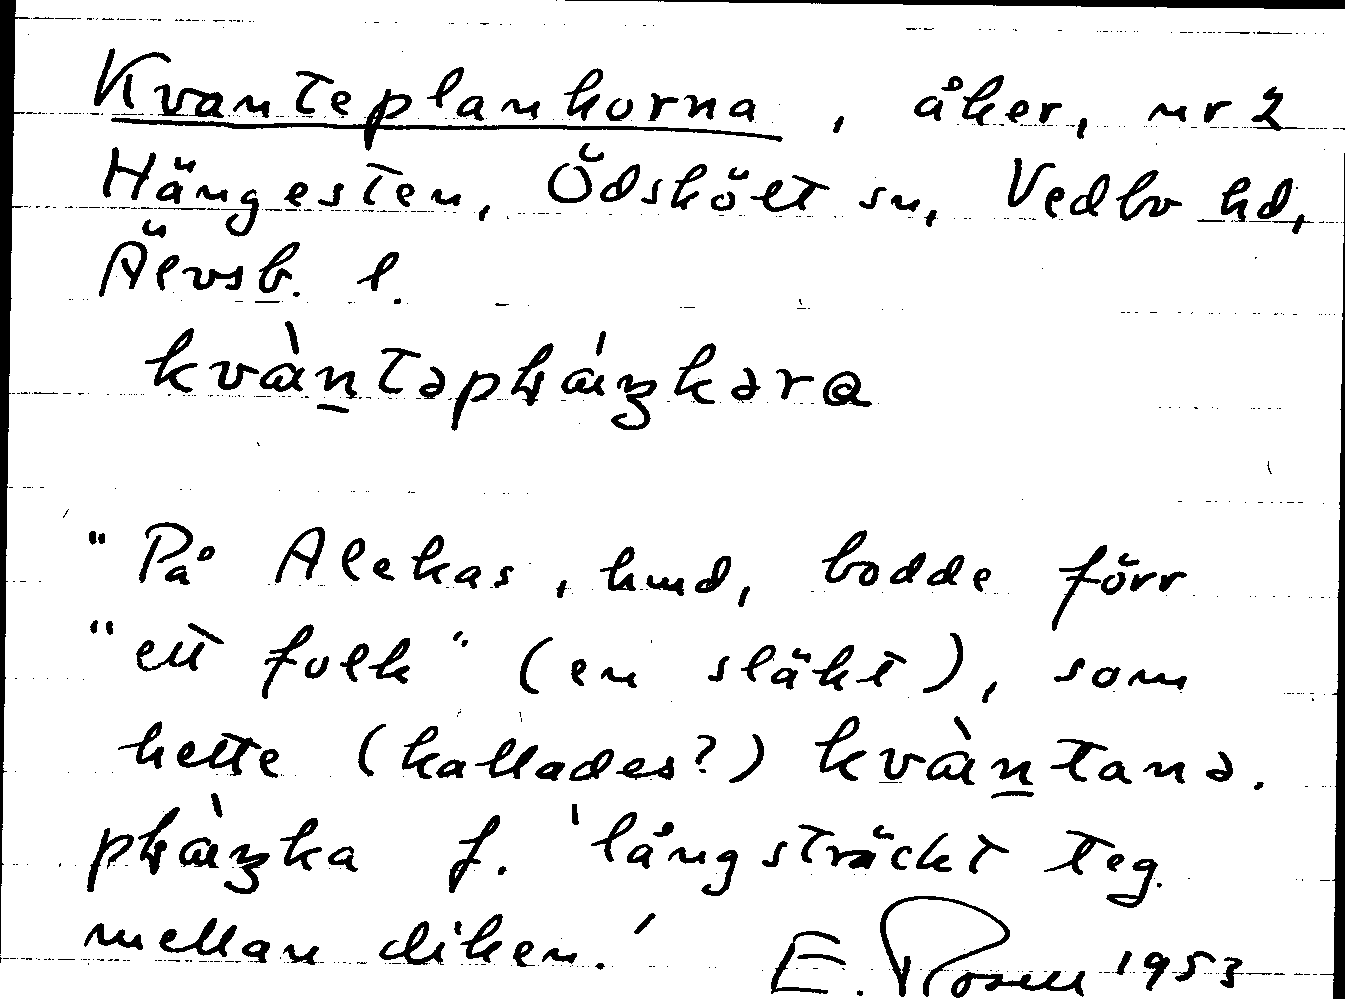 Kvanteplankorna, åker, nr 2
Hängesten, Ödskölt sn, Vedbo hd,
Älvsb. l.
kvàn̲təpɫáŋkəra
"På Alekas, hmd, bodde förr
"ett folk" (en släkt), som
hette (kallades?) kvàn̲tanə.
pɫàŋka f. 'långsträckt teg
mellan diken.'
E. Rosell 1953